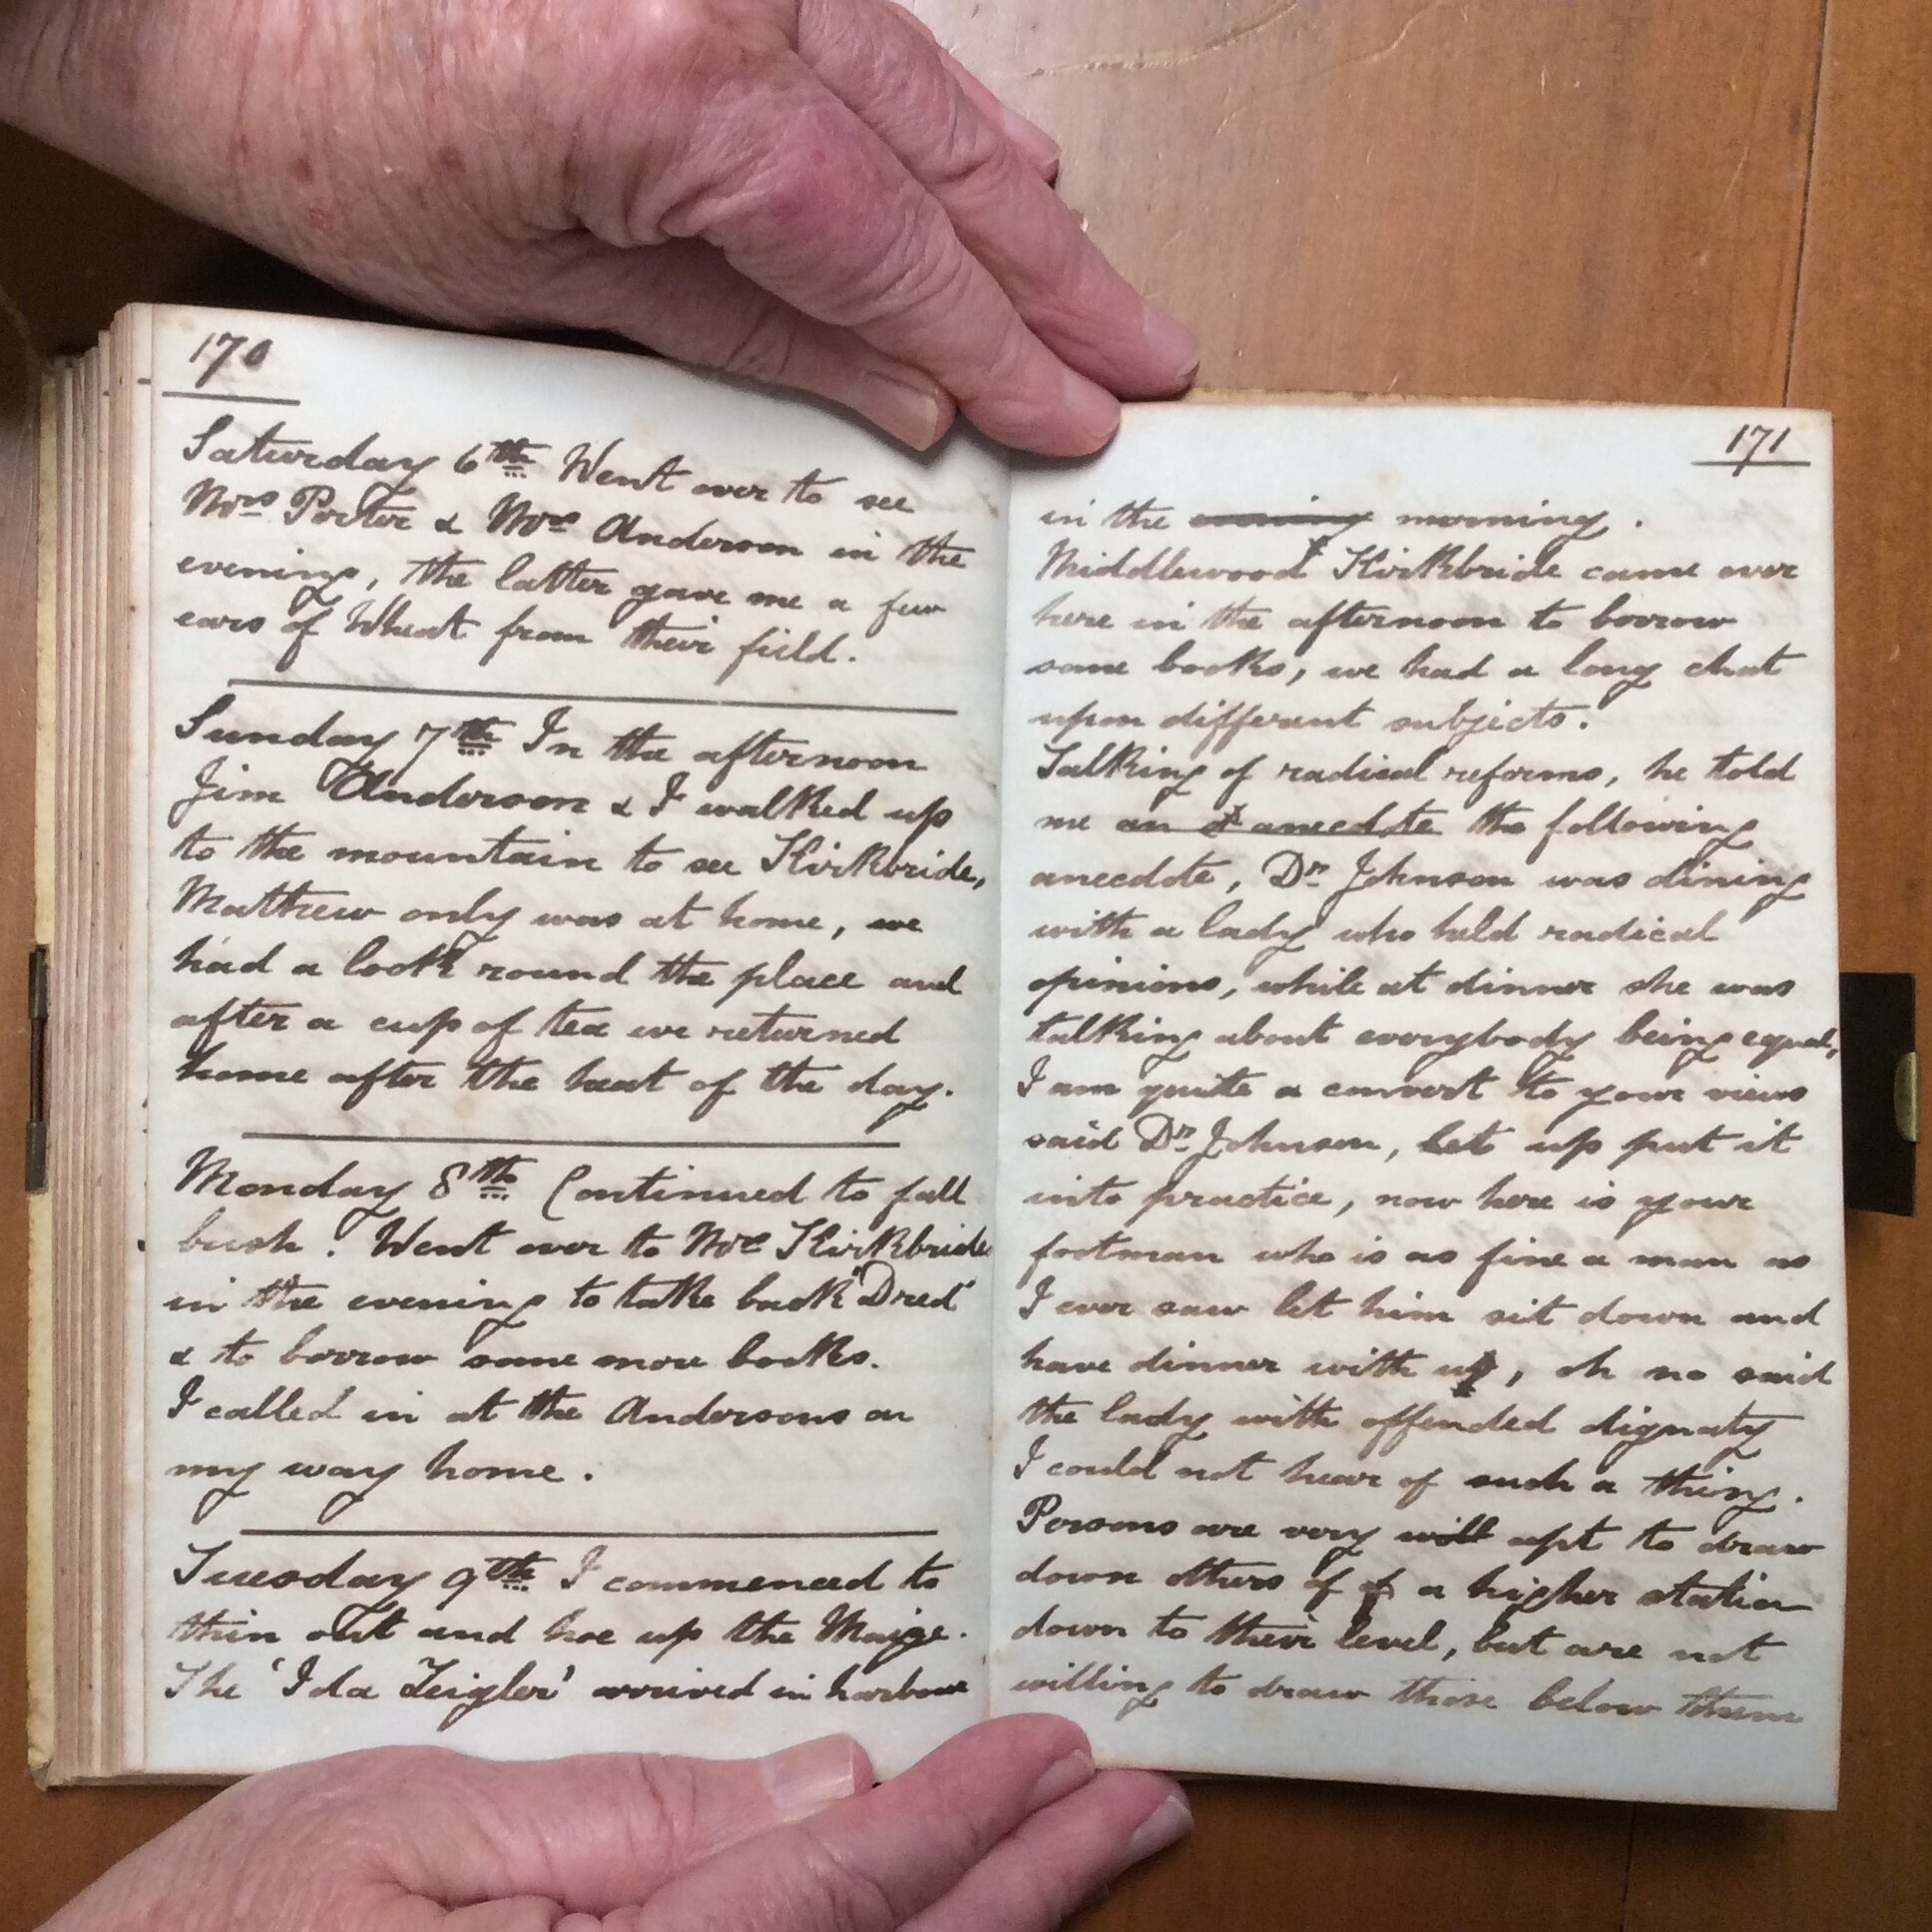 170
Saturday 6th Went over to see
Mrs Porter & Mrs Anderson in the
evening, the latter gave me a few
ears of Wheat from their field.
Sunday 7th In the afternoon
Jim Anderson & I walked up
to the mountain to see Kirkbride,
Matthew only was at home, we
had a look round the place and
after a cup of tea we returned
home after the heat of the day.
Monday 8th Continued to fall
bush. Went over to Mrs Kirkbride
in the evening to take back "Dred"
& to borrow some more books.
I called in at the Andersons on
my way home.
Tuesday 9th I commenced to
thin out and hoe up the Maize.
The 'Ida Zeigler' arrived in harbour
171
in the evening morning.
Middlewood Kirkbride came over
here in the afternoon to borrow
some books, we had a long chat
upon different subjects.
Talking of radical reforms, he told
me an anecdote the following
anecdote, Dr Johnson was dining
with a lady who held radical
opinions, while at dinner she was
talking about everybody being equal,
I am quite a convert to your views
said Dr Johnson, let up put it
into practice, now here is your
footman who is as fine a man as
I ever saw let him sit down and
have dinner with us, oh no said
the lady with offended dignaty
I could not hear of such a thing.
Persons are very will apt to draw
down others of of a higher station
down to their level, but are not
willing to draw those below them